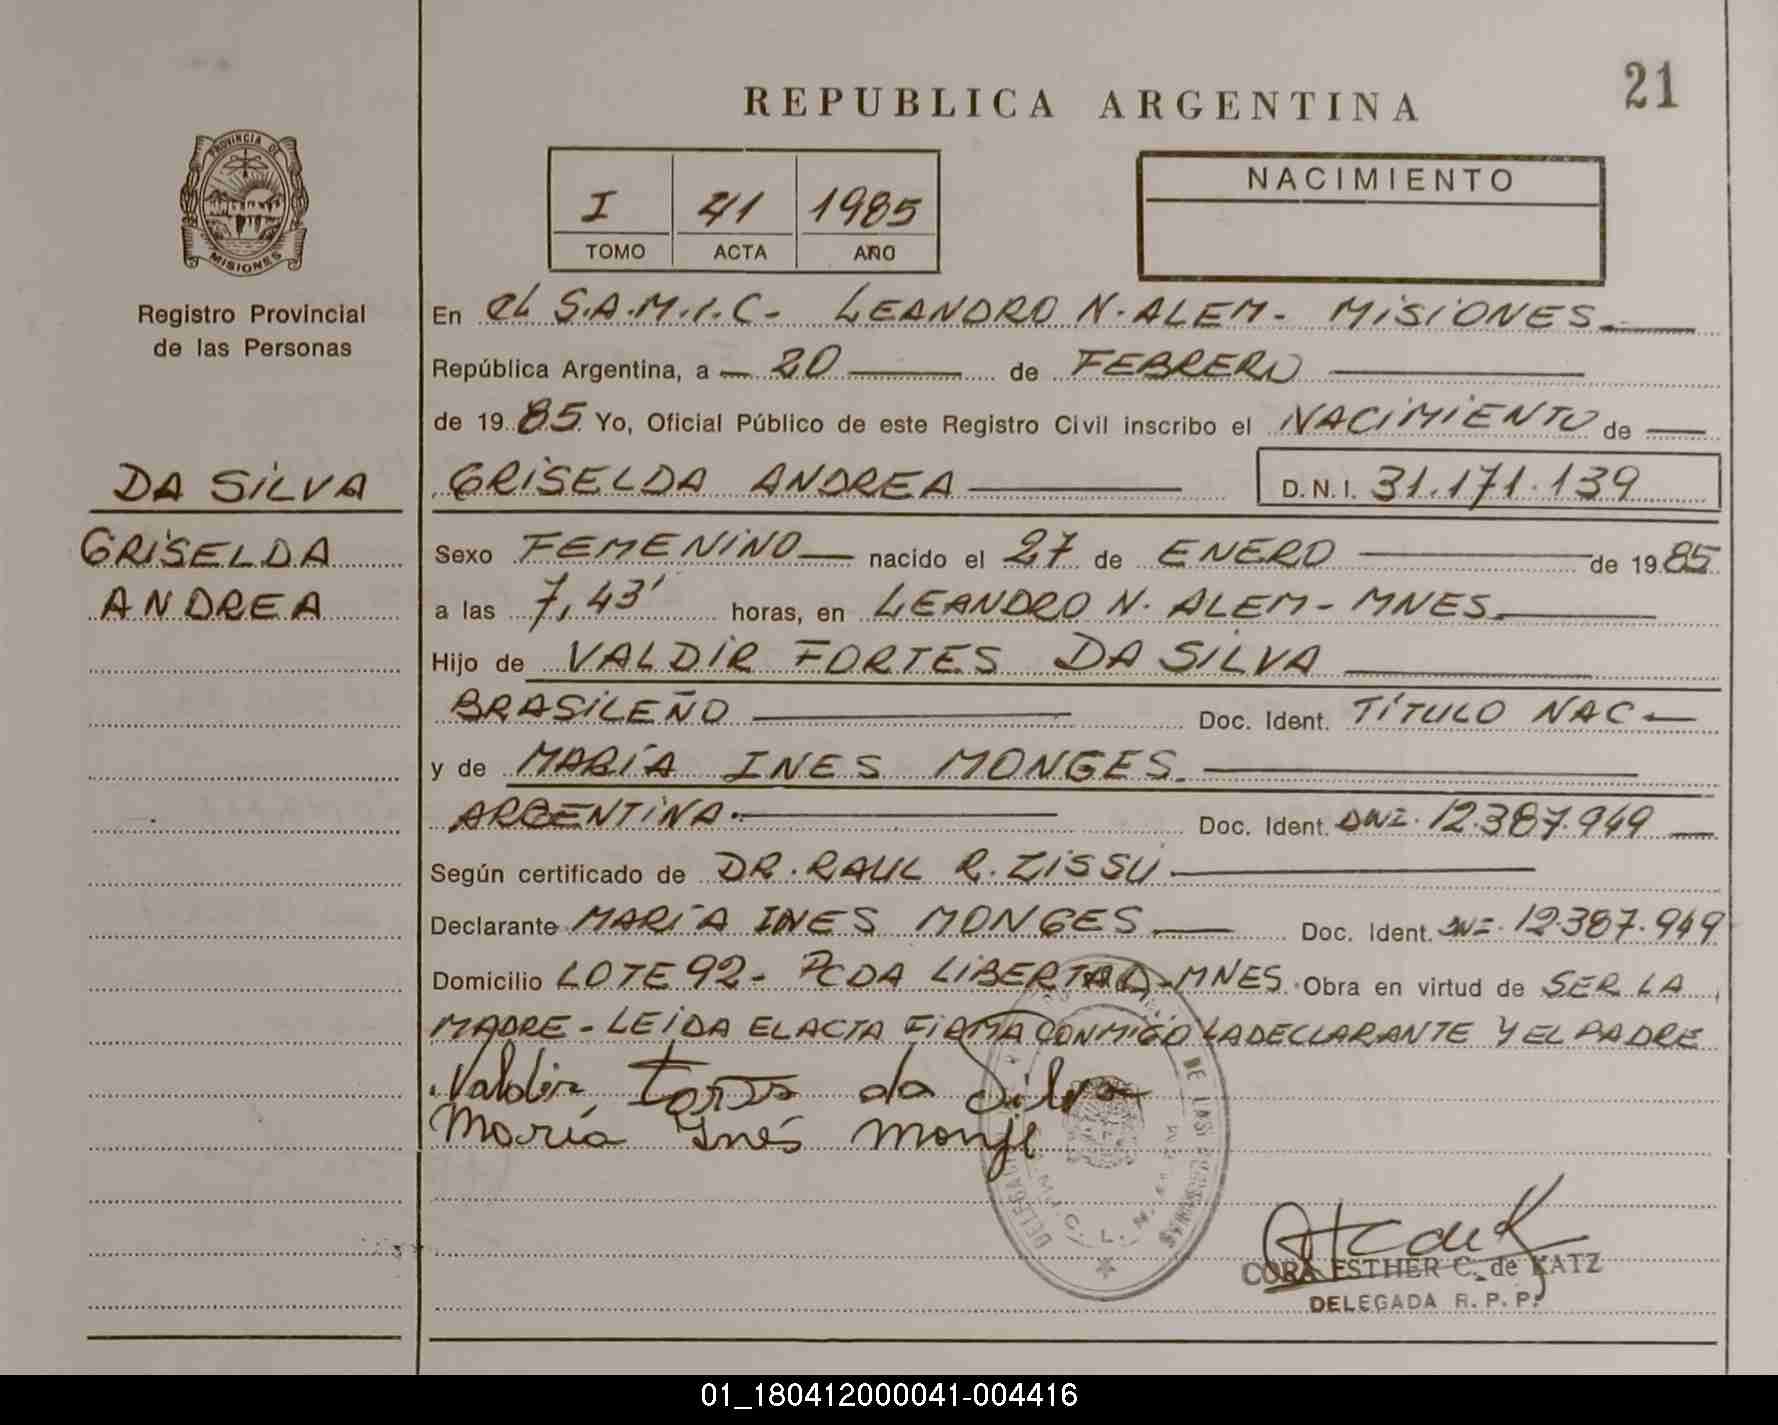 REPUBLICA ARGENTINA
21
PROVINCIA DE
MISIONES
Registro Provincial
de las Personas
I 41 1985
TOMO ACTA AÑO
NACIMIENTO
En el S.A.M.I.C- LEANDRO N. ALEM- MISIONES.
República Argentina, a 20 de FEBRERO
de 1985 Yo, Oficial Público de este Registro Civil inscribo el NACIMIENTO de
DA SILVA
GRISELDA
ANDREA
GRISELDA ANDREA D.N.I. 31.171.139
Sexo FEMENINO nacido el 27 de ENERO de 1985
a las 7,43' horas, en LEANDRO N. ALEM- MNES.
Hijo de VALDIR FORTES DA SILVA
BRASILEÑO Doc. Ident. TÍTULO NAC
y de MARÍA INES MONGES.
ARGENTINA. Doc. Ident. DNI. 12.387.949
Según certificado de DR. RAUL R. ZISSU
Declarante MARÍA INES MONGES Doc. Ident. DNI. 12.387.949
Domicilio LOTE 92- PCDA LIBERTAD-MNES Obra en virtud de SER LA
MADRE- LEIDA EL ACTA FIRMA CONMIGO LA DECLARANTE Y EL PADRE
Valdir da Silva
María Inés Monje
DE LAS PERSONAS
CORA ESTHER C. de KATZ
DELEGADA R. P. P.
01_180412000041-004416